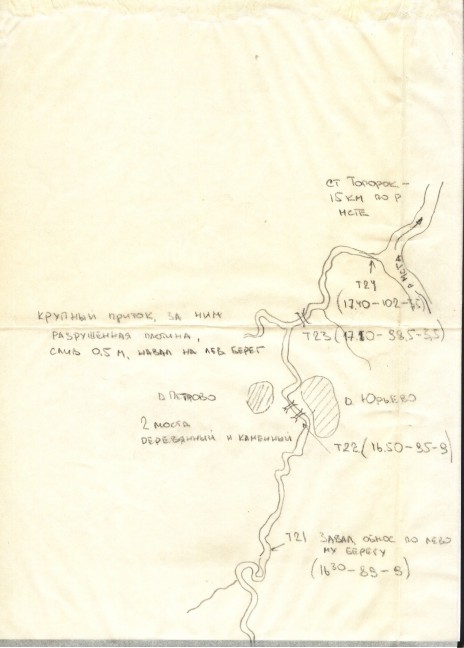 СТ ТОПОРОК -
15 КМ ПО Р
МСТЕ
Р. МСТА
Т24
(1740-102-3,5)
КРУПНЫЙ ПРИТОК, ЗА НИМ
РАЗРУШЕННАЯ ПЛОТИНА,
СЛИВ 0,5 М, НАВАЛ НА ЛЕВ БЕРЕГ
Т23 (17.10-98,5-3,5)
Д. ПЕТРОВО
Д. ЮРЬЕВО
2 МОСТА
ДЕРЕВЯННЫЙ И КАМЕННЫЙ
Т22 (16.50-95-9)
Т21 ЗАВАЛ, ОБНОС ПО ЛЕВО
МУ БЕРЕГУ
(16³⁰-89-9)